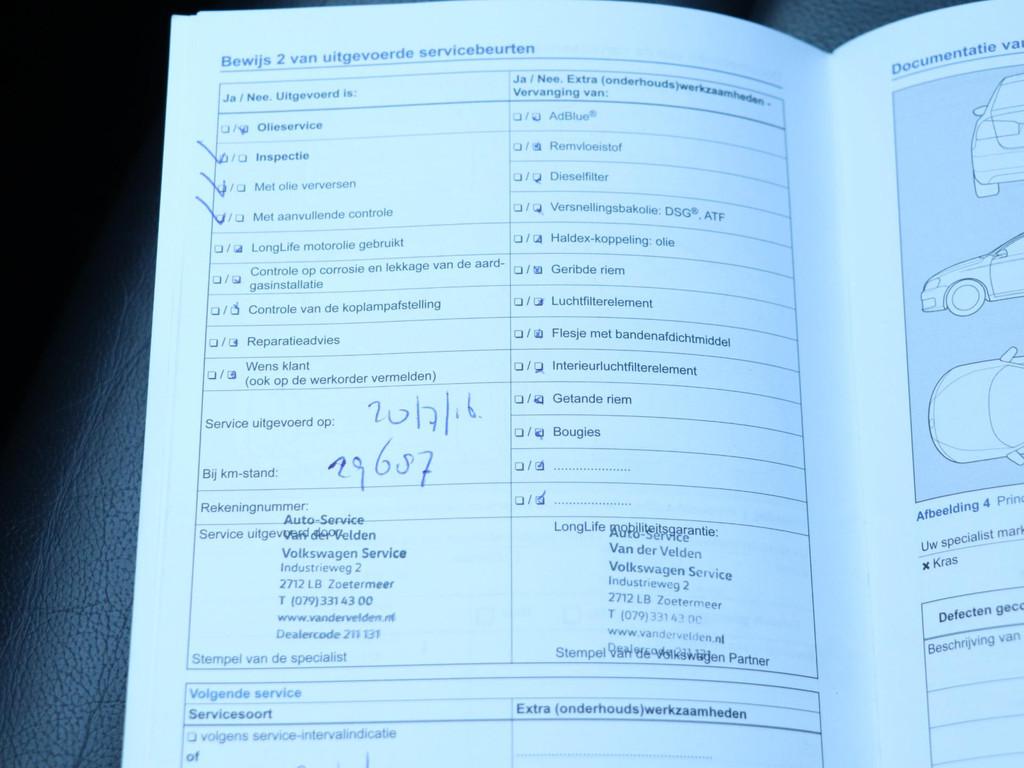 Bewijs 2 van uitgevoerde servicebeurten
Ja / Nee. Uitgevoerd is:
Olieservice
Inspectie
Met olie verversen
Met aanvullende controle
LongLife motorolie gebruikt
Controle op corrosie en lekkage van de aard-
gasinstallatie
Controle van de koplampafstelling
Reparatieadvies
Wens klant
(ook op de werkorder vermelden)
Service uitgevoerd op: 20/7/16.
Bij km-stand: 29687
Rekeningnummer:
Service uitgevoerd door:
Auto-Service
Van der Velden
Volkswagen Service
Industrieweg 2
2712 LB Zoetermeer
T (079) 331 43 00
www.vandervelden.nl
Dealercode 211 131
Stempel van de specialist
Ja / Nee. Extra (onderhouds)werkzaamheden -
Vervanging van:
AdBlue®
Remvloeistof
Dieselfilter
Versnellingsbakolie: DSG®, ATF
Haldex-koppeling: olie
Geribde riem
Luchtfilterelement
Flesje met bandenafdichtmiddel
Interieurluchtfilterelement
Getande riem
Bougies
LongLife mobiliteitsgarantie:
Auto-Service
Van der Velden
Volkswagen Service
Industrieweg 2
2712 LB Zoetermeer
T (079) 331 43 00
www.vandervelden.nl
Dealercode 211 131
Stempel van de Volkswagen Partner
Volgende service
Servicesoort
Extra (onderhouds)werkzaamheden
volgens service-intervalindicatie
of
Documentatie
Afbeelding 4
Uw specialist
× Kras
Defecten
Beschrijving van